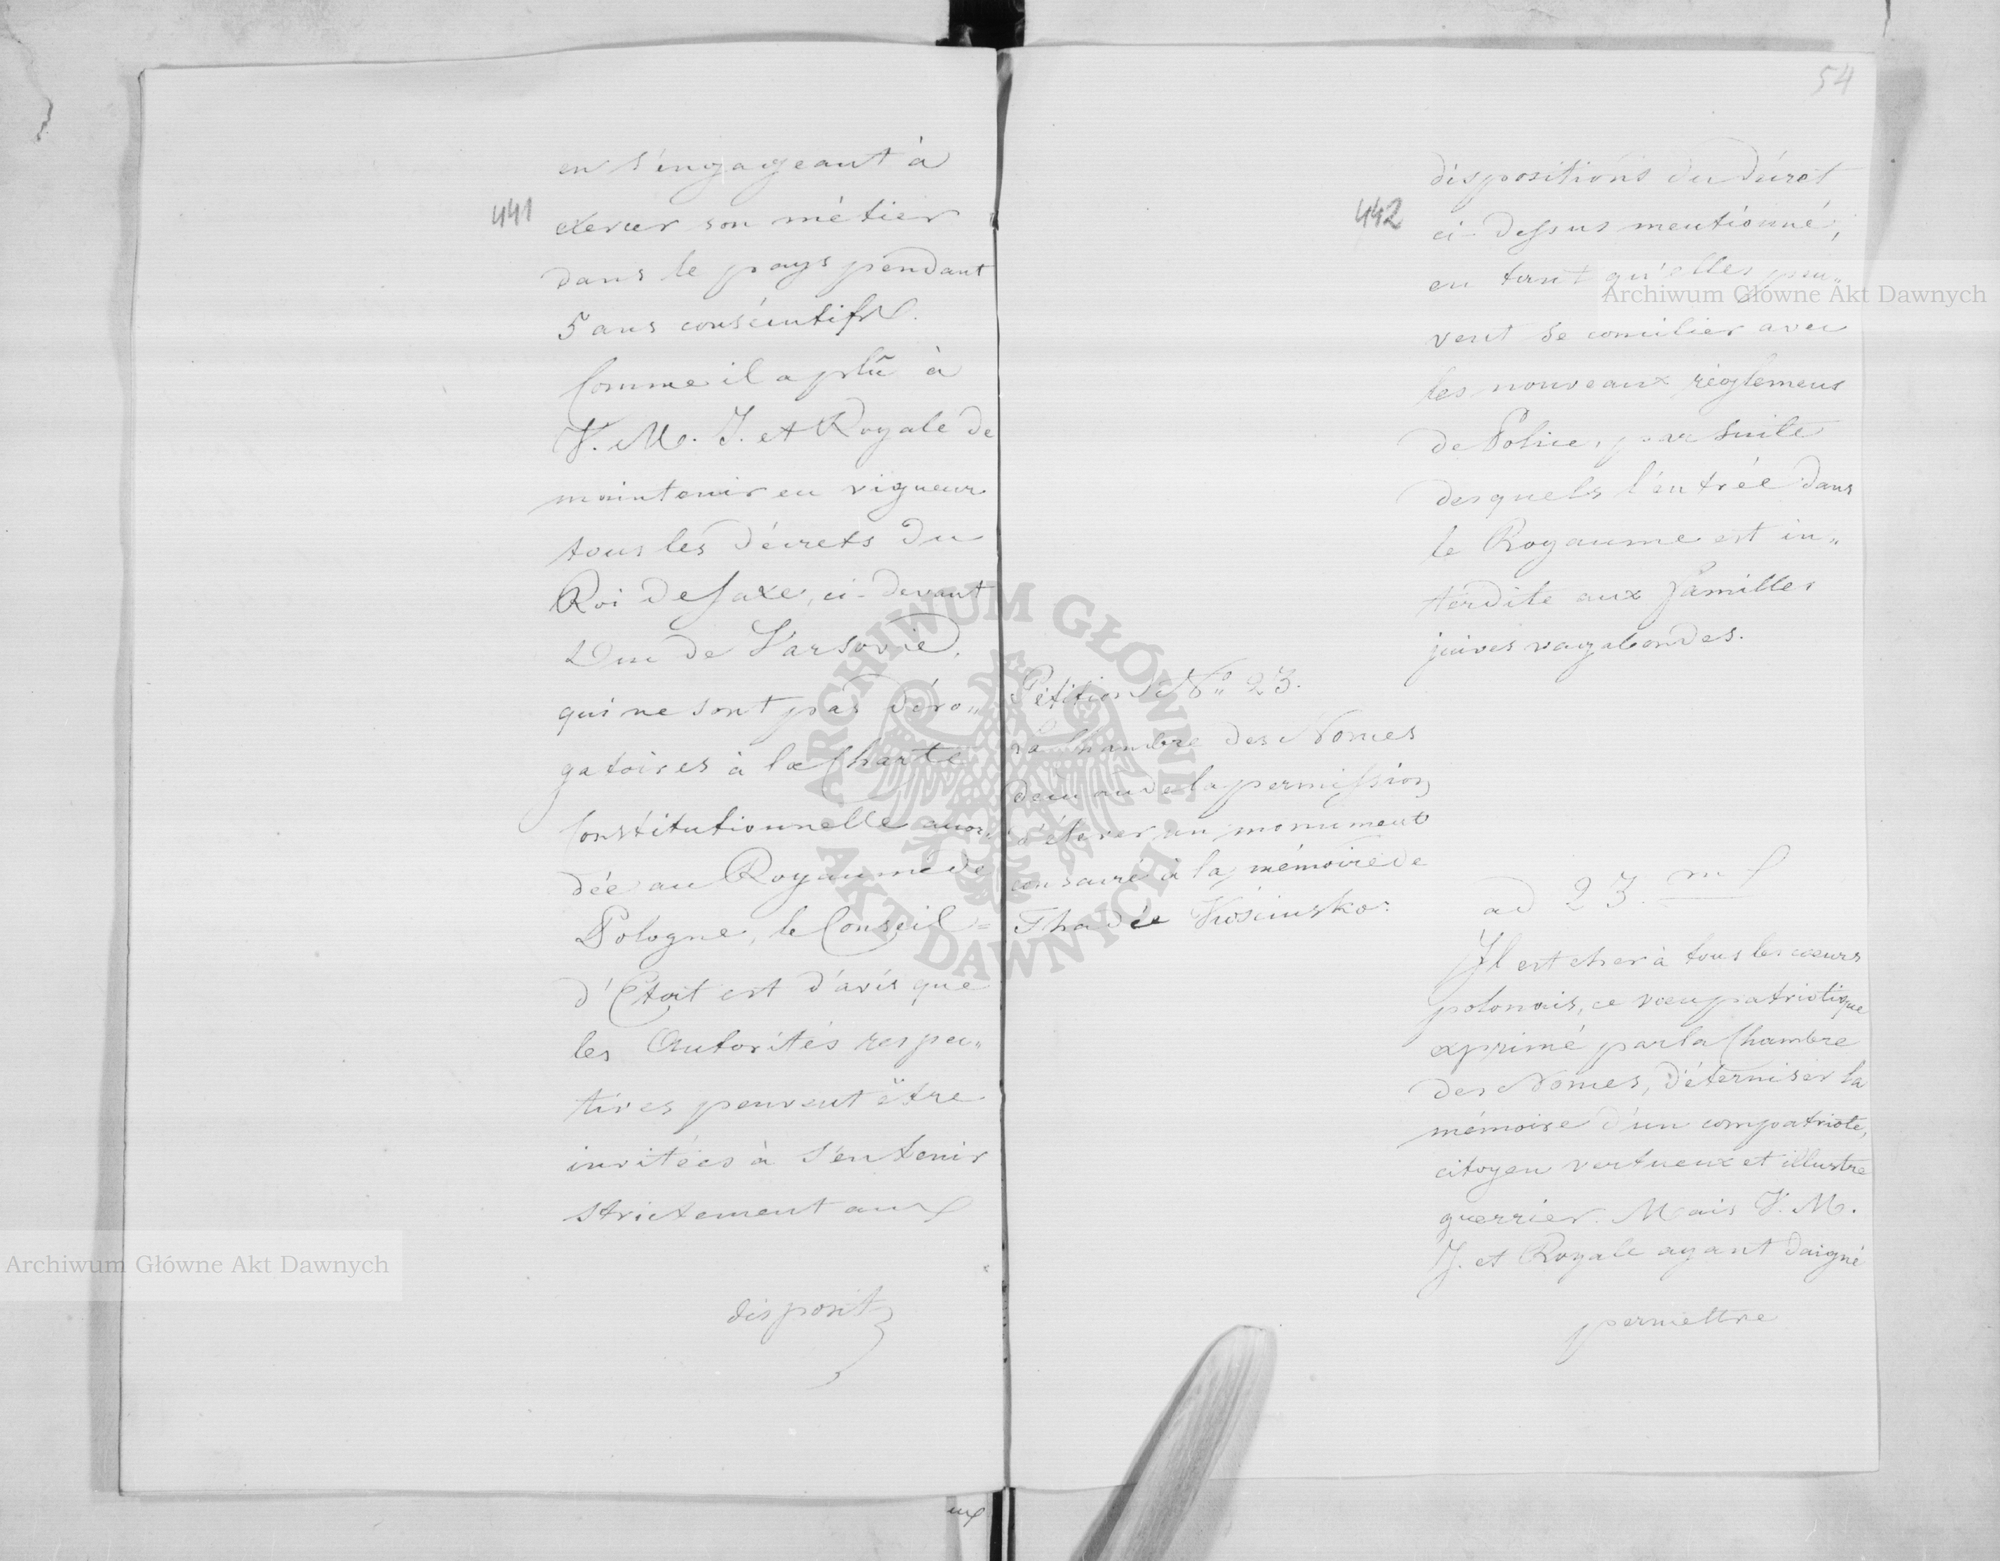 441
en s'engageant à
exercer son métier
dans le pays pendant
5 ans consécutifs.
Comme il a plû à
V. M. I. et Royale de
maintenir en vigueur
tous les décrets du
Roi de Saxe, ci-devant
Duc de Varsovie,
qui ne sont pas déro„
gatoires à la Charte
Constitutionnelle accor„
dée au Royaume de
Pologne, le Conseil =
d'Etat est d'avis que
les Autorités respec„
tives peuvent être
invitées à s'en tenir
strictement aux
disposit
54
442
dispositions du décret
ci-dessus mentionné,
en tant qu'elles peu„
vent se concilier avec
les nouveaux réglemens
de Police, par suite
desquels l'entrée dans
le Royaume est in„
terdite aux familles
juives vagabondes.
Pétition No 23.
la Chambre des Nonces
demande la permission
d'élever un monument
consacré à la mémoire de
Thadée Kościusko.
ad 23.
Il est cher à tous les cœurs
polonais, ce vœu patriotique
exprimé par la Chambre
des Nonces, d'éterniser la
mémoire d'un compatriote,
citoyen vertueux et illustre
guerrier. Mais V. M.
I. et Royale ayant daigné
permettre
Archiwum Główne Akt Dawnych
Archiwum Główne Akt Dawnych
ARCHIWUM GŁÓWNE
AKT DAWNYCH